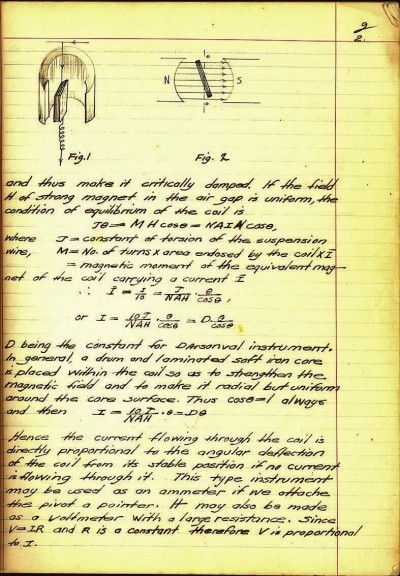 9/2.
N S
Fig.1 Fig. 2
and thus make it critically damped. If the field
H of strong magnet in the air gap is uniform, the
condition of equilibrium of the coil is
Jθ = M H cosθ = NAIH cosθ,
where J = constant of torsion of the suspension
wire, M = No. of turns x area endosed by the coil x I
= magnetic moment of the equivalent mag-
net of the coil carrying a current I
∴ I = I/10 = J/NAH · θ/cosθ,
or I = 10J/NAH · θ/cosθ = D · θ/cosθ
D being the constant for D'Arsonval instrument.
In general, a drum and laminated soft iron core
is placed within the coil so as to strengthen the
magnetic field and to make it radial but uniform
around the core surface. Thus cosθ=1 always
and then I = 10J/NAH · θ = Dθ
Hence the current flowing through the coil is
directly proportional to the angular deflection
of the coil from its stable position if no current
is flowing through it. This type instrument
may be used as an ammeter if we attache
the pivot a pointer. It may also be made
as a voltmeter with a large resistance. Since
V=IR and R is a constant therefore V is proportional
to I.